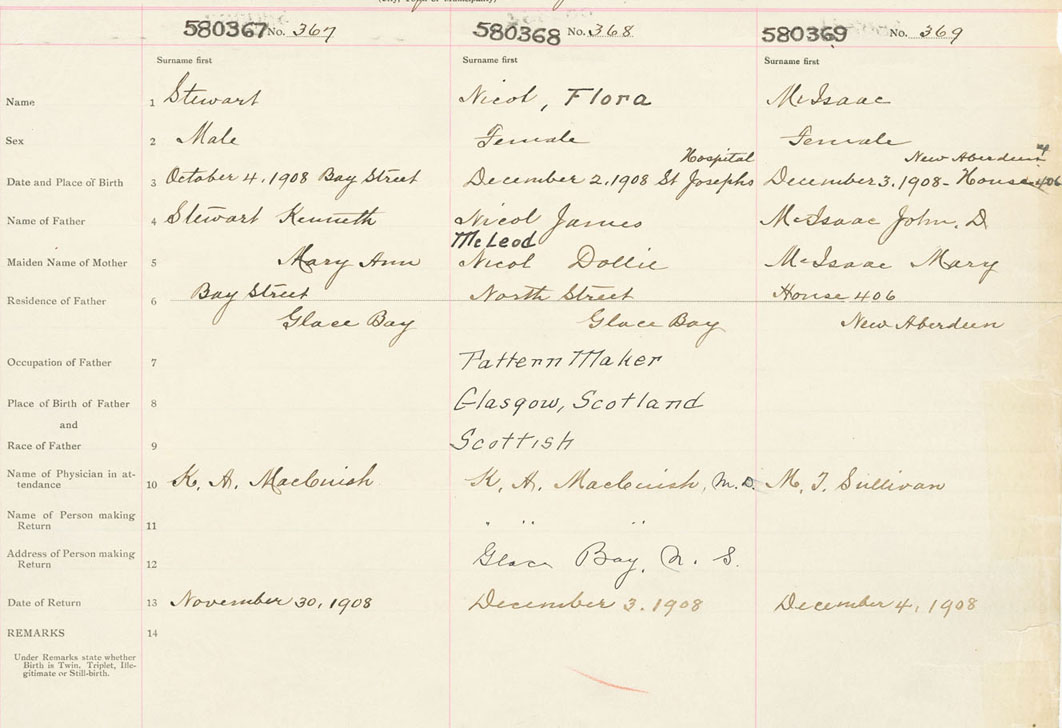 580367 No. 367 580368 No. 368 580369 No. 369
Surname first Surname first Surname first
Name 1 Stewart Nicol, Flora McIsaac
Sex 2 Male Female Female
Hospital New Aberdeen
Date and Place of Birth 3 October 4, 1908 Bay Street December 2, 1908 St Josephs December 3, 1908 - House 406
Name of Father 4 Stewart Kenneth Nicol James McIsaac John. D
McLeod
Maiden Name of Mother 5 Mary Ann Nicol Dollie McIsaac Mary
Residence of Father 6 Bay Street North Street House 406
Glace Bay Glace Bay New Aberdeen
Occupation of Father 7 Pattern Maker
Place of Birth of Father 8 Glasgow, Scotland
and
Race of Father 9 Scottish
Name of Physician in at-
tendance 10 K. A. MacCuish K. A. MacCuish, M.D. M. T. Sullivan
Name of Person making
Return 11 " " "
Address of Person making
Return 12 Glace Bay, N. S.
Date of Return 13 November 30, 1908 December 3. 1908 December 4, 1908
REMARKS 14
Under Remarks state whether
Birth is Twin, Triplet, Ille-
gitimate or Still-birth.